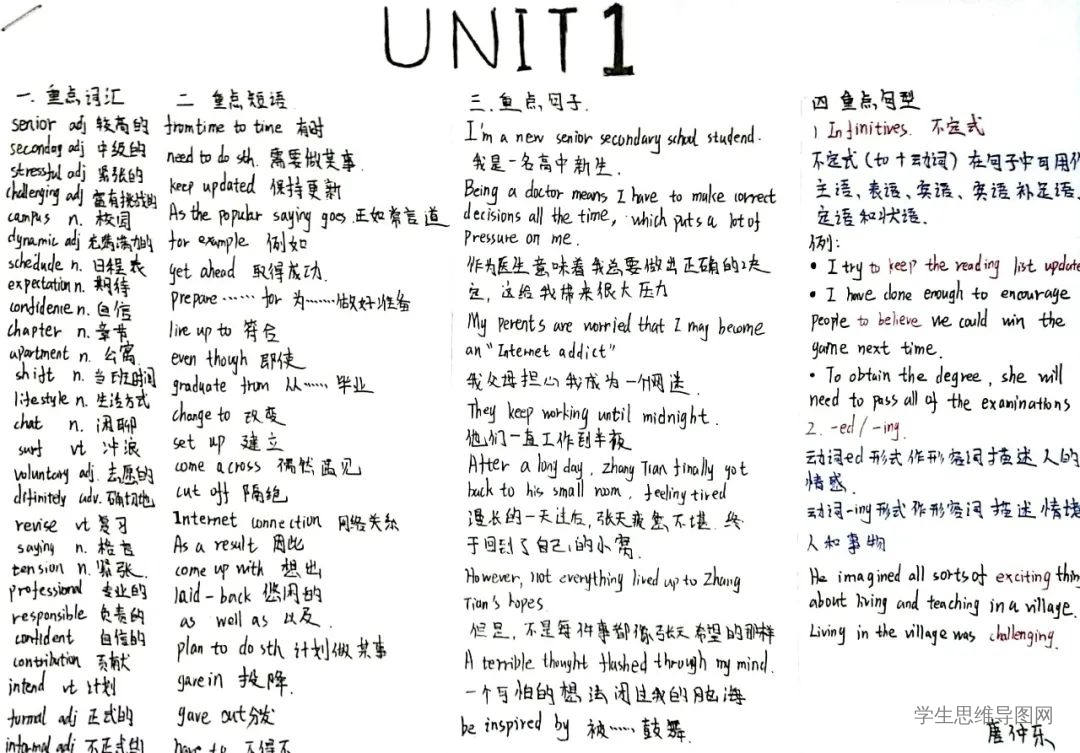 UNIT1
一.重点词汇
senior adj 较高的
secondag adj 中级的
stressful adj 紧张的
challenging adj 富有挑战的
campus n. 校园
dynamic adj 充满活力的
schedude n. 日程表
expectation n. 期待
confidenie n. 自信
chapter n. 章节
apartment n. 公寓
shift n. 当班时间
lifestyle n. 生活方式
chat n. 闲聊
surf vt 冲浪
voluntary adj. 志愿的
difinitely adv. 确切地
revise vt 复习
saying n. 格言
tension n. 紧张.
professional 专业的
responsible 负责的
confident 自信的
contribution 贡献
intend vt 计划
formal adj 正式的
informal adj 不正式的
二 重点短语
from time to time 有时
need to do sth. 需要做某事.
keep updated 保持更新
As the popular saying goes 正如常言道
for example 例如
get ahead 取得成功.
prepare……for 为……做好准备
live up to 符合
even though 即使
graduate from 从……毕业
change to 改变
set up 建立
come across 偶然遇见
cut off 隔绝
Internet connection 网络关系
As a result 因此
come up with 想出
laid-back 悠闲的
as well as 以及.
plan to do sth 计划做某事
gave in 投降.
gave out 分发
have to 不得不
三.重点句子.
I'm a new senior secondary schoul studend.
我是一名高中新生.
Being a doctor means I have to make correct
decisions all the time, which puts a lot of
Pressure on me.
作为医生意味着我总要做出正确的决
定,这给我带来很大压力
My perents are worried that I may become
an "Internet addict"
我父母担心我成为一个网迷.
They keep working until midnight.
他们一直工作到半夜
After a long day, Zhang Tian finally got
back to his small room, feeling tired
漫长的一天过后,张天疲惫不堪.终
于回到了自己的小窝.
However, not everything lived up to Zhang
Tian's hopes.
但是,不是每件事都像张天希望的那样
A terrible thought flashed through my mind.
一个可怕的想法闪过我的脑海
be inspired by 被……鼓舞.
四 重点句型
1 Infinitives. 不定式
不定式(to+动词)在句子中可用作
主语、表语、宾语、宾语补足语、
定语和状语.
例:
• I try to keep the reading list update
• I have done enough to encourage
people to believe we could win the
game next time.
• To obtain the degree, she will
need to pass all of the examinations
2. -ed/-ing.
动词ed形式作形容词描述人的
情感.
动词-ing形式作形容词描述情境
人和事物
He imagined all sorts of exciting thin
about living and teaching in a village.
Living in the village was challenging.
学生思维导图网
唐仲东